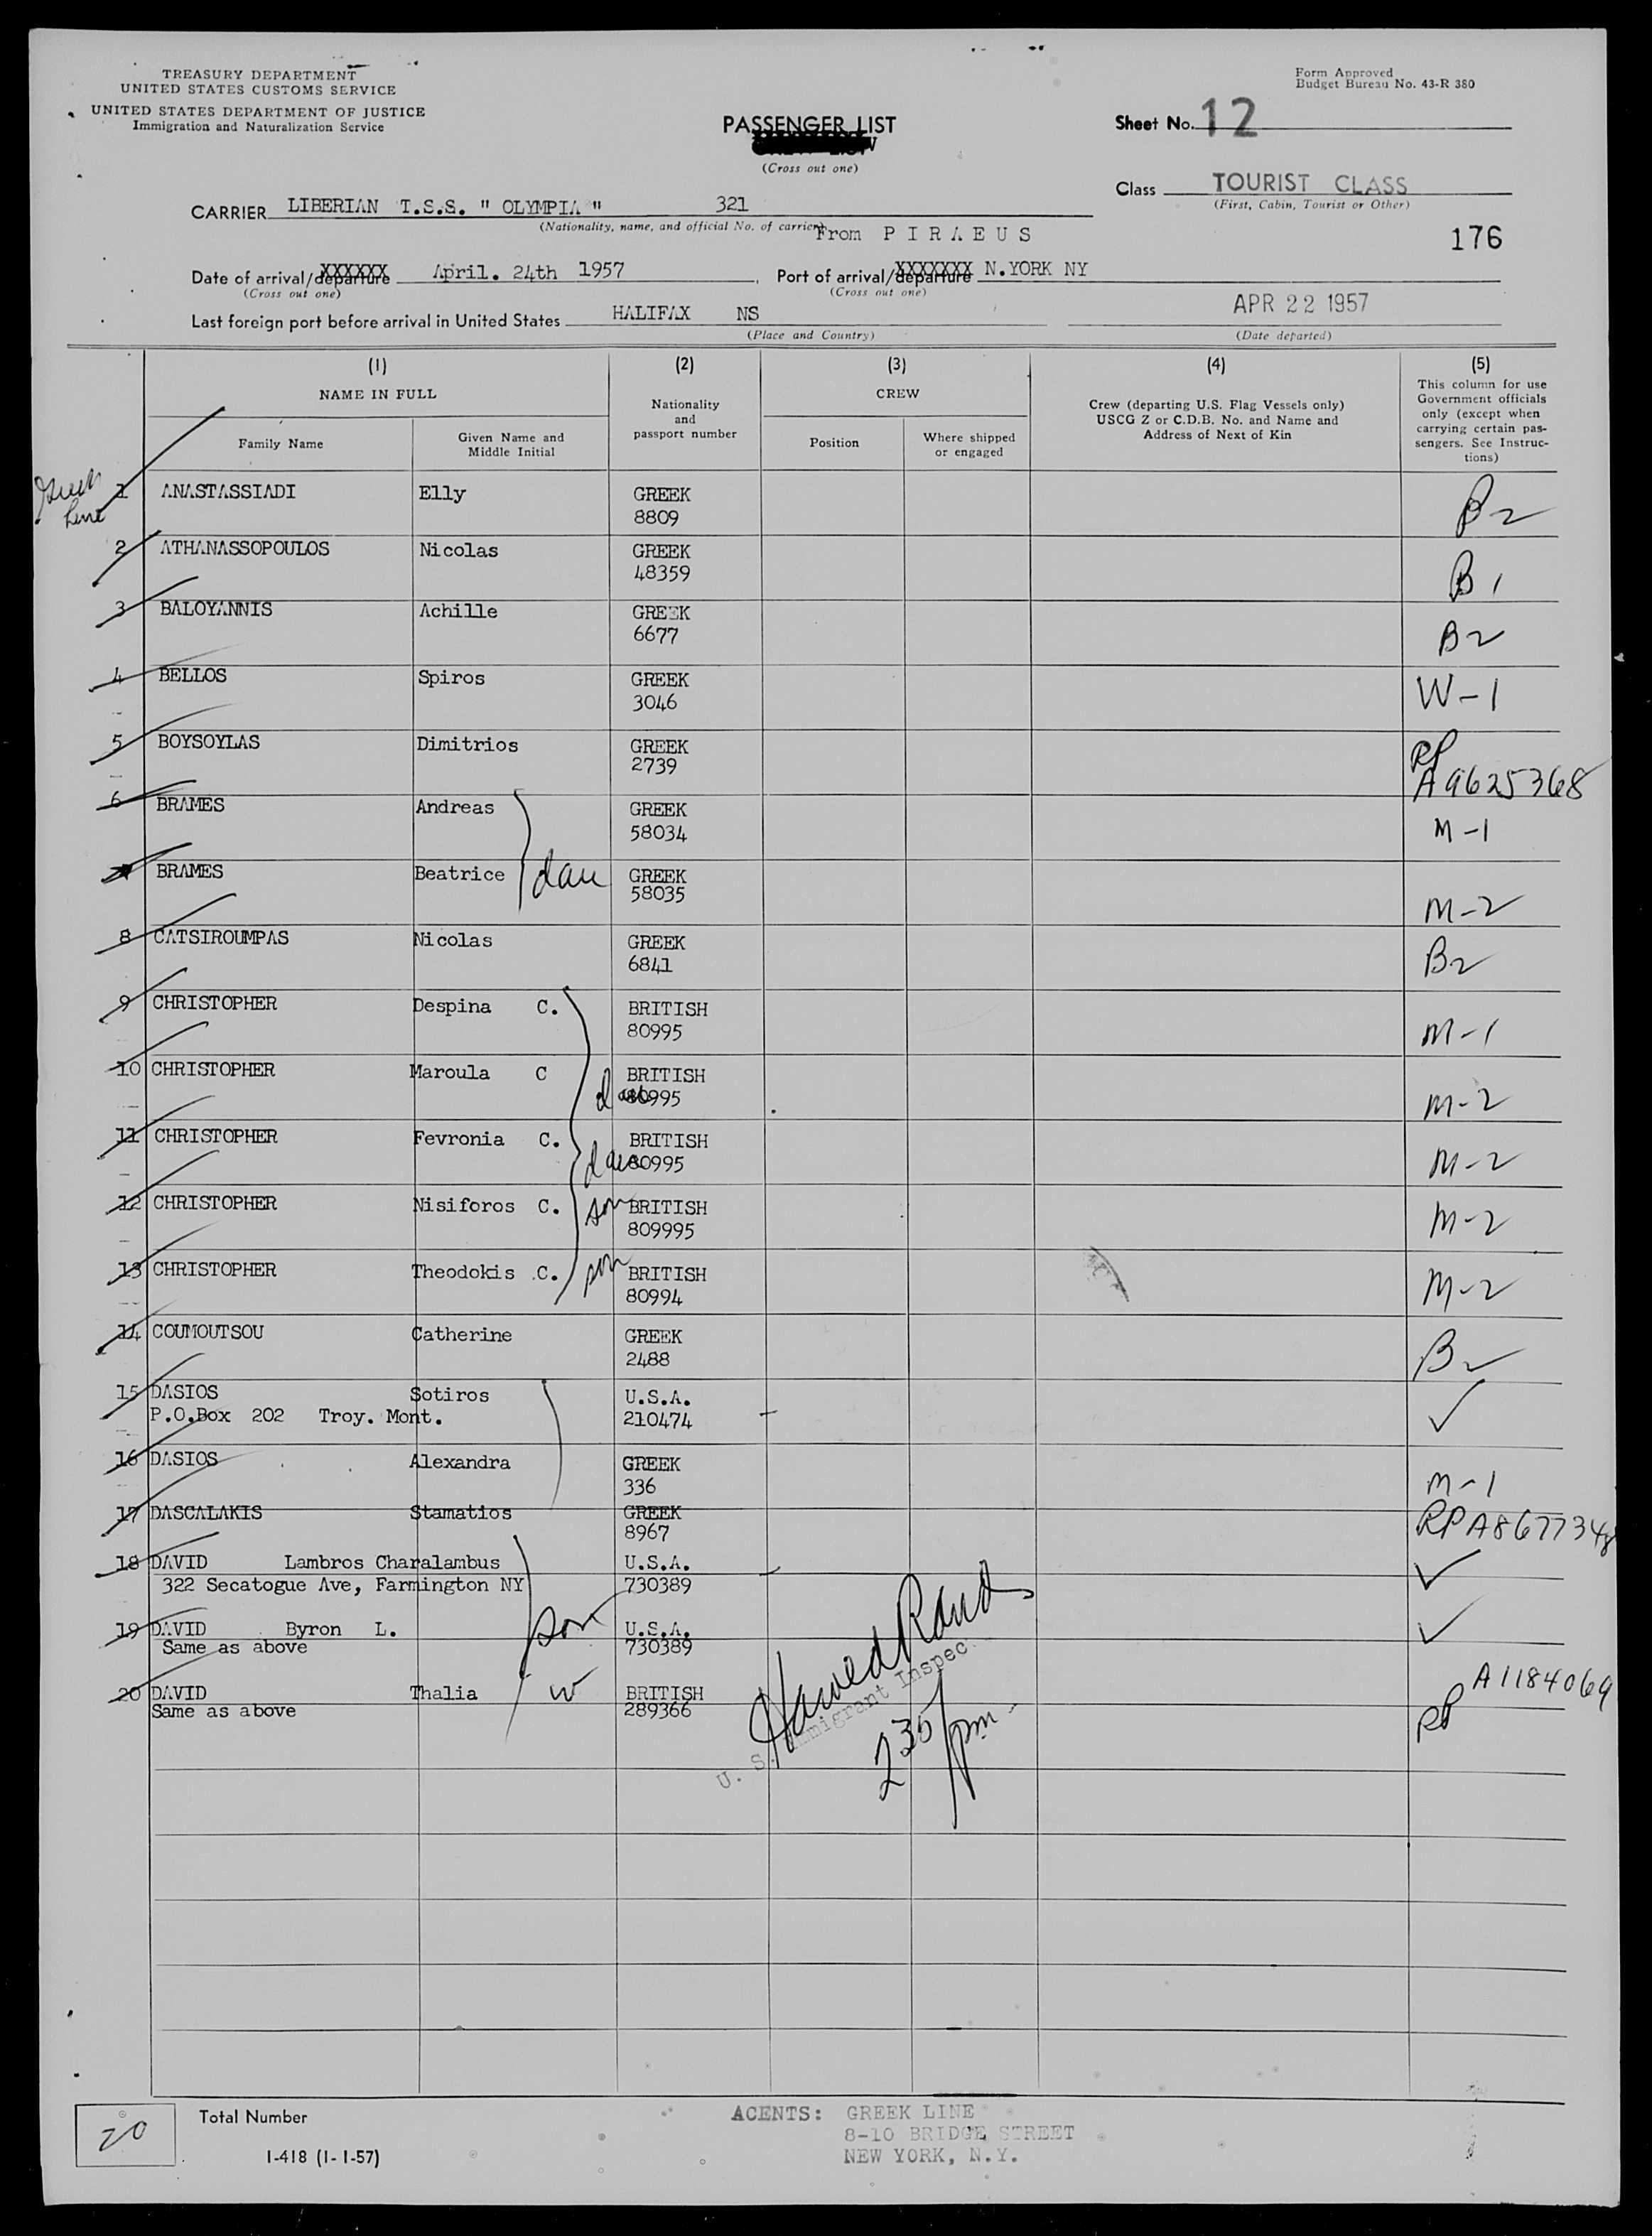 TREASURY DEPARTMENT
UNITED STATES CUSTOMS SERVICE
UNITED STATES DEPARTMENT OF JUSTICE
Immigration and Naturalization Service
Form Approved
Budget Bureau No. 43-R 380
PASSENGER LIST
(Cross out one)
Sheet No. 12
Class TOURIST CLASS
(First, Cabin, Tourist or Other)
CARRIER LIBERIAN T.S.S. " OLYMPIA " 321
(Nationality, name, and official No. of carrier)
From PIRAEUS
176
Date of arrival/departure XXXXXX April. 24th 1957
(Cross out one)
Port of arrival/departure XXXXXXX N.YORK NY
(Cross out one)
Last foreign port before arrival in United States HALIFAX NS
(Place and Country)
APR 22 1957
(Date departed)
(1) (2) (3) (4) (5)
NAME IN FULL
Family Name
Given Name and
Middle Initial
Nationality
and
passport number
CREW
Position
Where shipped
or engaged
Crew (departing U.S. Flag Vessels only)
USCG Z or C.D.B. No. and Name and
Address of Next of Kin
This column for use
Government officials
only (except when
carrying certain pas-
sengers. See Instruc-
tions)
Greek
Line
1 ANASTASSIADI Elly GREEK B2
8809
2 ATHANASSOPOULOS Nicolas GREEK B1
48359
3 BALOYANNIS Achille GREEK B2
6677
4 BELLOS Spiros GREEK W-1
3046
5 BOYSOYLAS Dimitrios GREEK RP
2739 A9625368
6 BRAMES Andreas GREEK M-1
58034
7 BRAMES Beatrice dau GREEK M-2
58035
8 CATSIROUMPAS Nicolas GREEK B2
6841
9 CHRISTOPHER Despina C. BRITISH M-1
80995
10 CHRISTOPHER Maroula C BRITISH M-2
dau 80995
11 CHRISTOPHER Fevronia C. BRITISH M-2
dau 80995
12 CHRISTOPHER Nisiforos C. son BRITISH M-2
809995
13 CHRISTOPHER Theodokis .C. son BRITISH M-2
80994
14 COUMOUTSOU Catherine GREEK B2
2488
15 DASIOS Sotiros U.S.A.
P.O.Box 202 Troy. Mont. 210474
16 DASIOS Alexandra GREEK M-1
336
17 DASCALAKIS Stamatios GREEK RP A8677348
8967
18 DAVID Lambros Charalambus U.S.A.
322 Secatogue Ave, Farmington NY 730389
19 DAVID Byron L. son U.S.A.
Same as above 730389
20 DAVID Thalia w BRITISH A1184069
Same as above 289366 RP
U. S. Immigrant Inspec
235 pm
20
Total Number
I-418 (1-1-57)
AGENTS: GREEK LINE
8-10 BRIDGE STREET
NEW YORK, N.Y.